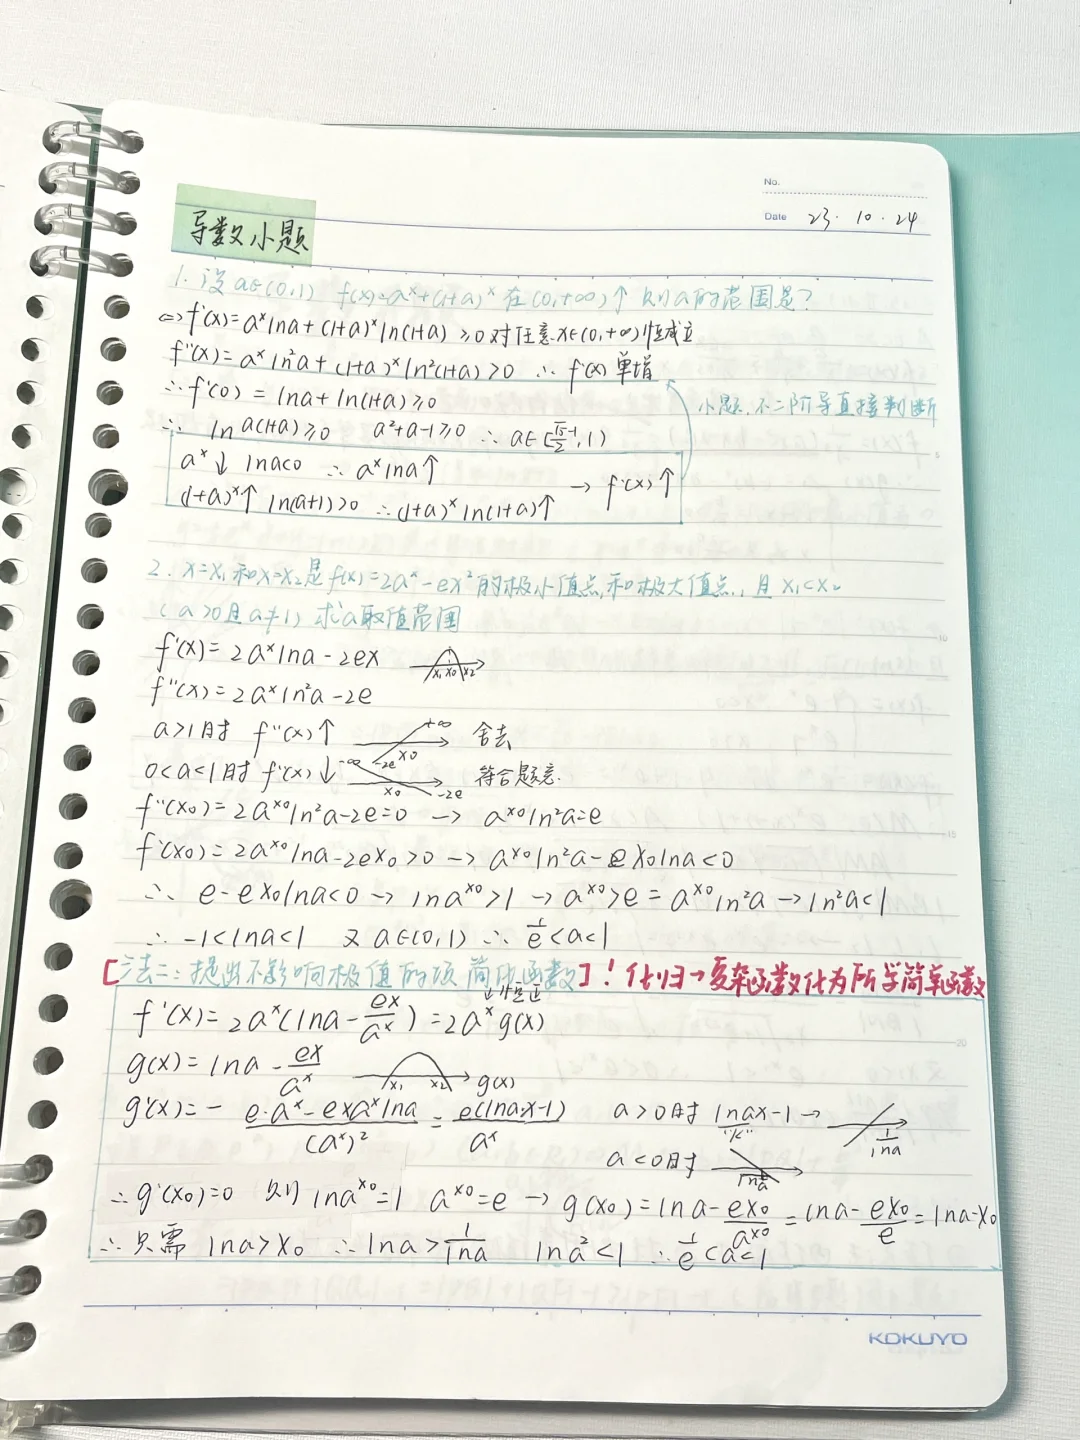 No.
Date 23.10.24
导数小题
1.设a∈(0,1) f(x)=aˣ+(1+a)ˣ在(0,+∞)↑ 则a的范围是?
⇔f'(x)=aˣlna+(1+a)ˣln(1+a)≥0对任意x∈(0,+∞)恒成立
f''(x)=aˣln²a+(1+a)ˣln²(1+a)>0 ∴f'(x)单增
∴f'(0)=lna+ln(1+a)≥0
小题,不二阶导直接判断
∴ lna(1+a)≥0 a²+a-1≥0 ∴a∈[(√5-1)/2,1)
aˣ↓ lna<0 ∴aˣlna↑
(1+a)ˣ↑ ln(a+1)>0 ∴(1+a)ˣln(1+a)↑ → f'(x)↑
2.x=x₁和x=x₂是f(x)=2aˣ-ex²的极小值点和极大值点,且x₁<x₂
(a>0且a≠1)求a取值范围
f'(x)=2aˣlna-2ex x₁ x₀ x₂
f''(x)=2aˣln²a-2e
a>1时 f''(x)↑ -2e x₀ +∞ 舍去
0<a<1时 f''(x)↓ -∞ x₀ -2e 符合题意.
f''(x₀)=2aˣ⁰ln²a-2e=0 → aˣ⁰ln²a=e
f'(x₀)=2aˣ⁰lna-2ex₀>0→aˣ⁰ln²a-ex₀lna<0
∴ e-ex₀lna<0→lnaˣ⁰>1→aˣ⁰>e=aˣ⁰ln²a→ln²a<1
∴-1<lna<1 又a∈(0,1) ∴1/e<a<1
[法二:提出不影响极值的项 简化函数]!化归→复杂函数化为所学简单函数
↓恒正
f'(x)=2aˣ(lna-ex/aˣ)=2aˣg(x)
g(x)=lna-ex/aˣ x₁ x₂ g(x)
g'(x)=-(e·aˣ-exaˣlna)/(aˣ)²=e(lna·x-1)/aˣ a>0时 lnax-1→ "k" 1/lna
a<0时 1/lna
∴g'(x₀)=0 则lnaˣ⁰=1 aˣ⁰=e → g(x₀)=lna-ex₀/aˣ⁰=lna-ex₀/e=lna-x₀
∴只需 lna>x₀ ∴lna>1/lna lna²<1 ∴1/e<a<1
KOKUYO